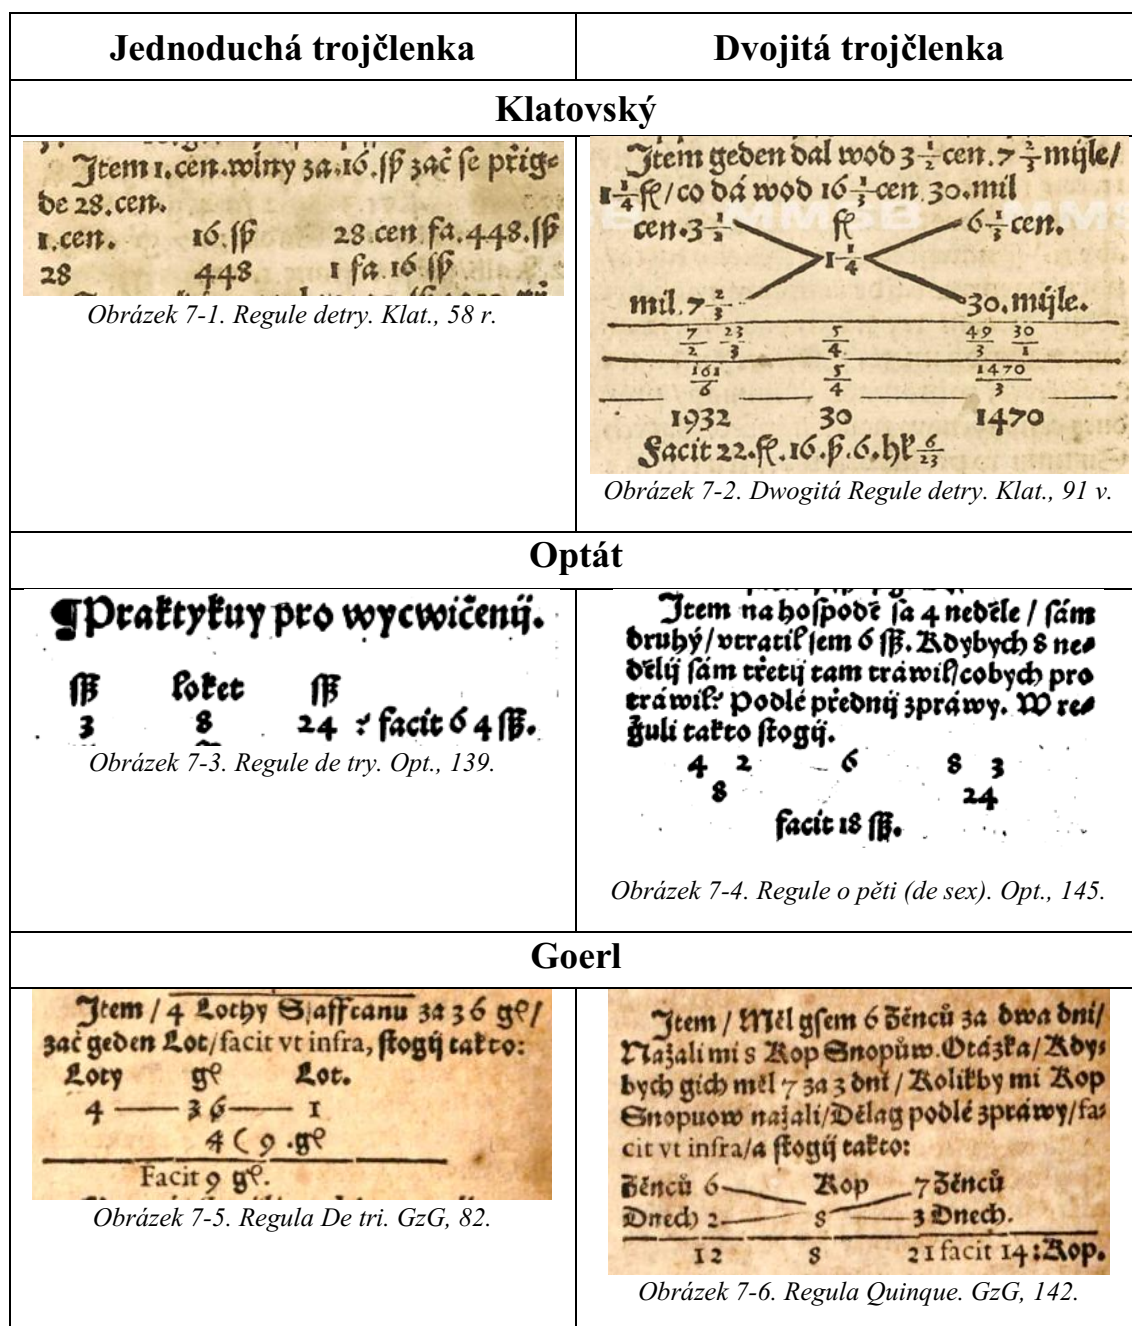 Jednoduchá trojčlenka
Dvojitá trojčlenka
Klatovský
Jtem 1.cen.wlny za.16.ſß zač ſe přig⸗
de 28.cen.
1.cen. 16.ſß 28.cen fa.448.ſß
28 448 1 fa.16 ſß
Obrázek 7-1. Regule detry. Klat., 58 r.
Jtem geden dal wod 3 1/2 cen. 7 2/3 mijle/
1 1/4 fl/co dá wod 16 1/3 cen 30.mil
cen.3 1/2 fl 6 1/3 cen.
1 1/4
mil.7 2/3 30.mijle.
7/2 23/3 5/4 49/3 30/1
161/6 5/4 1470/3
1932 30 1470
Facit 22.fl.16.ß.6.hl 6/23
Obrázek 7-2. Dwogitá Regule detry. Klat., 91 v.
Optát
¶Praktykuy pro wycwičenij.
ſß loket ſß
3 8 24 : facit 64 ſß.
Obrázek 7-3. Regule de try. Opt., 139.
Jtem na hoſpodě ſa 4 neděle / ſám
druhý/vtratil ſem 6 ſß. Kdybych 8 ne⸗
dělij ſám třetij tam tráwil/cobych pro
tráwil? Podlé přednij zpráwy. W re⸗
guli takto ſtogij.
4 2 6 8 3
8 24
facit 18 ſß.
Obrázek 7-4. Regule o pěti (de sex). Opt., 145.
Goerl
Jtem / 4 Lothy Sſaffranu za 36 gl/
zač geden Lot/facit vt infra, ſtogij takto:
Loty gl Lot.
4 — 36 — 1
4 ( 9 .gl
Facit 9 gl.
Obrázek 7-5. Regula De tri. GzG, 82.
Jtem / Měl gſem 6 Ženců za dwa dni/
Nažali mi s Kop Snopůw.Otázka/Kdy⸗
bych gich měl 7 za 3 dni / Kolikby mi Kop
Snopuow nažali/Dělag podlé zpráwy/fa⸗
cit vt infra/a ſtogij takto:
Ženců 6 Kop 7 Ženců
Dnech 2 8 3 Dnech.
12 8 21 facit 14:Kop.
Obrázek 7-6. Regula Quinque. GzG, 142.